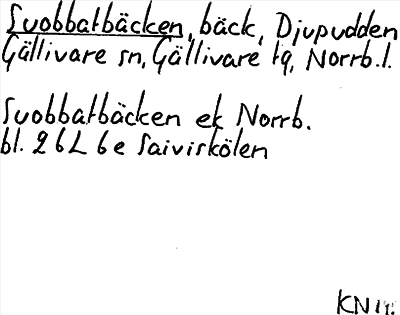 Suobbatbäcken, bäck, Djupudden
Gällivare sn, Gällivare tg, Norrb. l.
Suobbatbäcken ek Norrb.
bl. 26L 6e Saiviskölen
KN